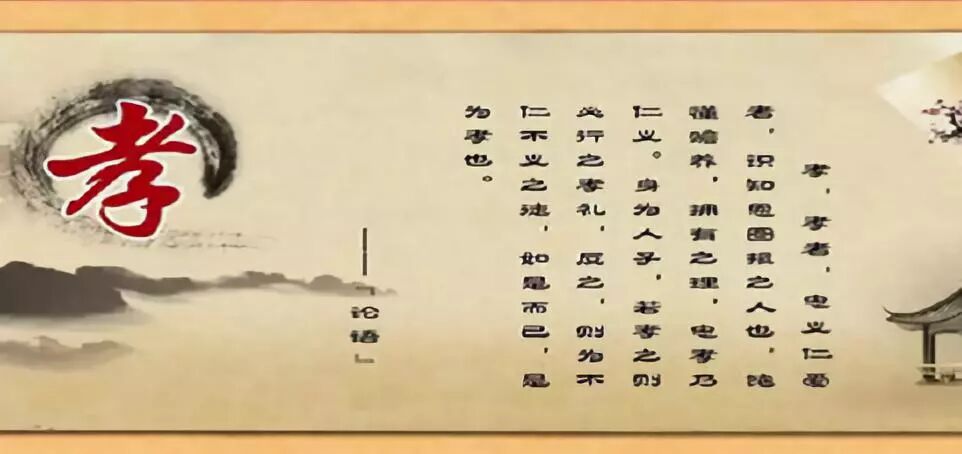 孝
孝，孝者，电义仁
者，识知恩图报之人也，
懂赡养，拥有之理，电孝乃
仁义。身为人子，若孝之则
必行之孝礼，反之，则为不
仁不义之徒，如是而已，是
为孝也。
——「论语」